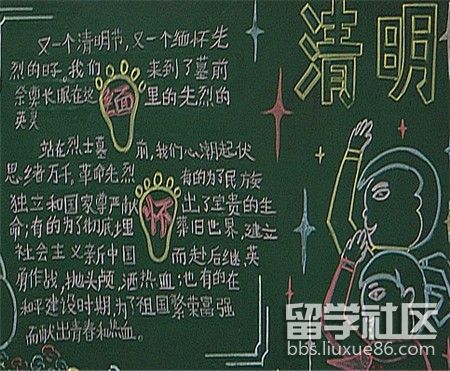 清明
又一个清明节,又一个缅怀先
烈的日子。我们来到了墓前
祭奠长眠在这里的先烈的
英灵
缅
站在烈士墓前,我们心潮起伏
思绪万千,革命先烈有的为了民族
独立和国家尊严献出了宝贵的生
命;有的为了彻底埋葬旧世界,建立
社会主义新中国而赴后继,英
勇作战,抛头颅,洒热血;也有的在
和平建设时期,为了祖国繁荣富强
而献出青春和热血。
怀
留学社区
bbs.liuxue86.com